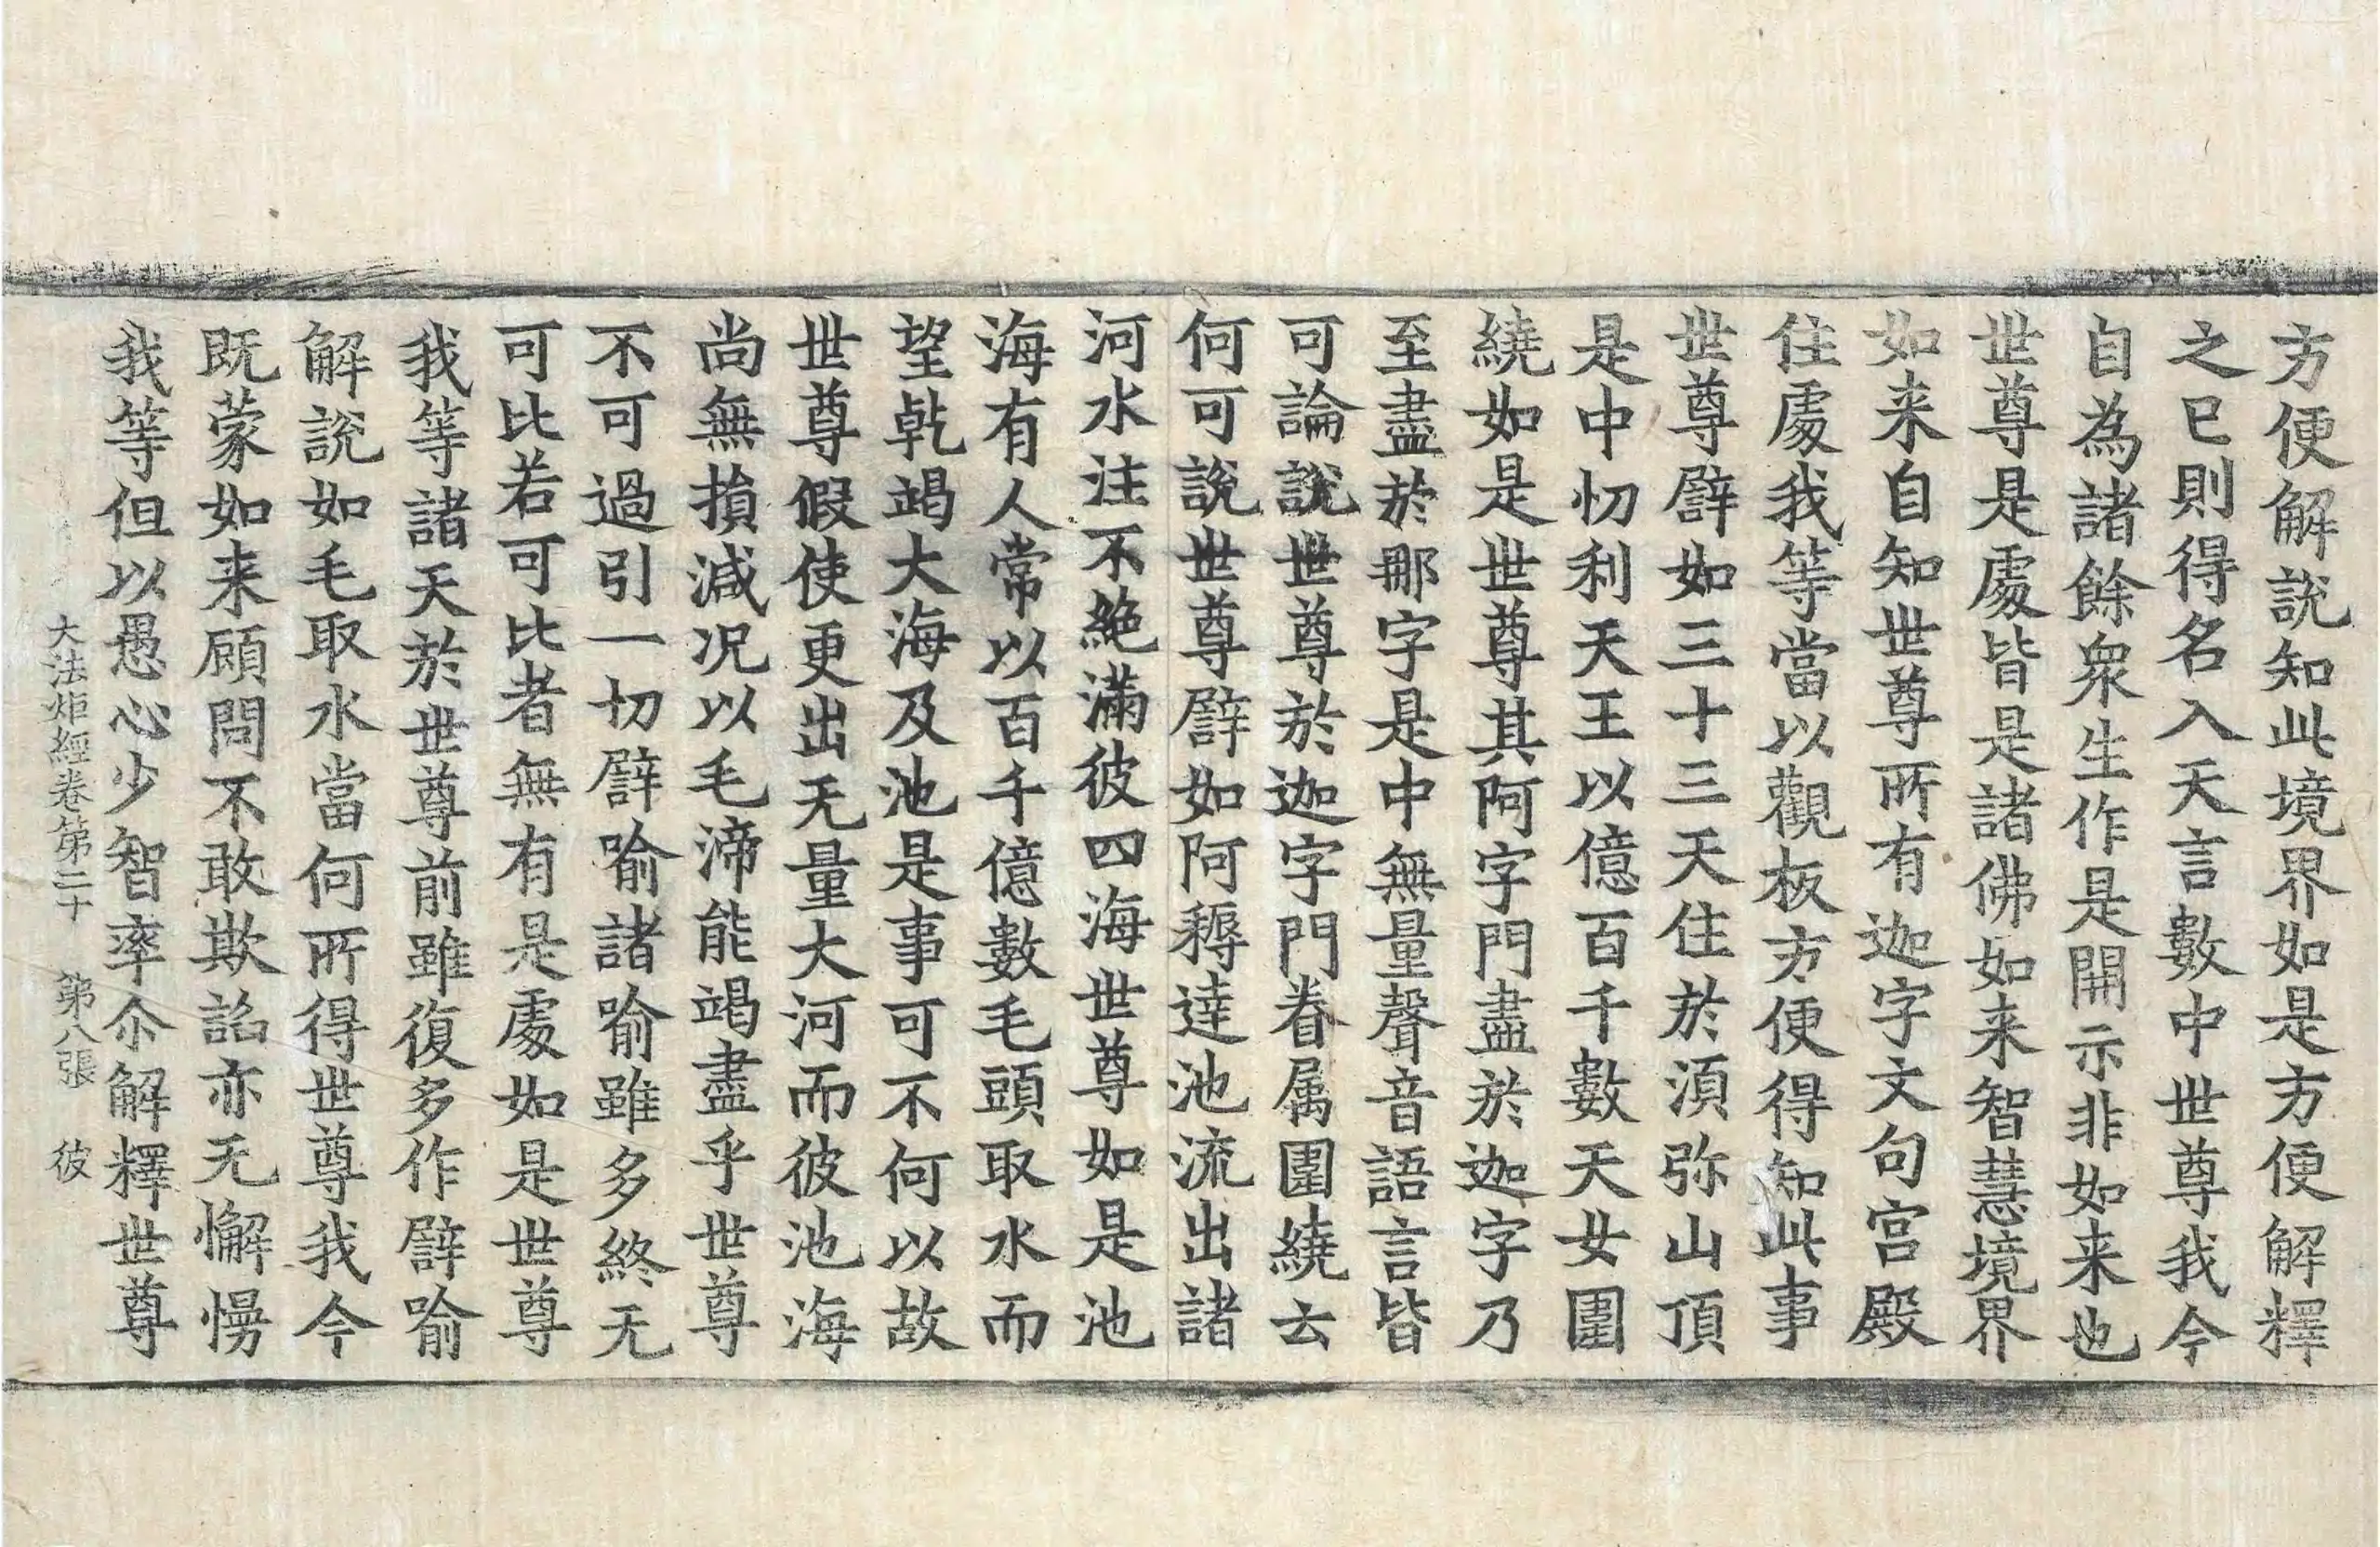 方便解說知此境界如是方便解釋
之已則得名入天言數中世尊我今
自為諸餘衆生作是開示非如来也
世尊是處皆是諸佛如来智慧境界
如来自知世尊所有迦字文句宫殿
住處我等當以觀板方便得知此事
世尊譬如三十三天住於湏弥山頂
是中忉利天王以億百千數天女圍
繞如是世尊其阿字門盡於迦字乃
至盡於那字是中無量聲音語言皆
可論說世尊於迦字門眷属圍繞云
何可說世尊譬如阿耨達池流出諸
河水注不絶滿彼四海世尊如是池
海有人常以百千億數毛頭取水而
望乹竭大海及池是事可不何以故
世尊假使更出无量大河而彼池海
尚無損減况以毛渧能竭盡乎世尊
不可過引一切譬喻諸喻雖多終无
可比若可比者無有是處如是世尊
我等諸天於世尊前雖復多作譬喻
解說如毛取水當何所得世尊我今
既蒙如来顧問不敢欺諂亦无懈慢
我等但以愚心少智率尒解釋世尊
大法炬經卷第二十 第八張 彼